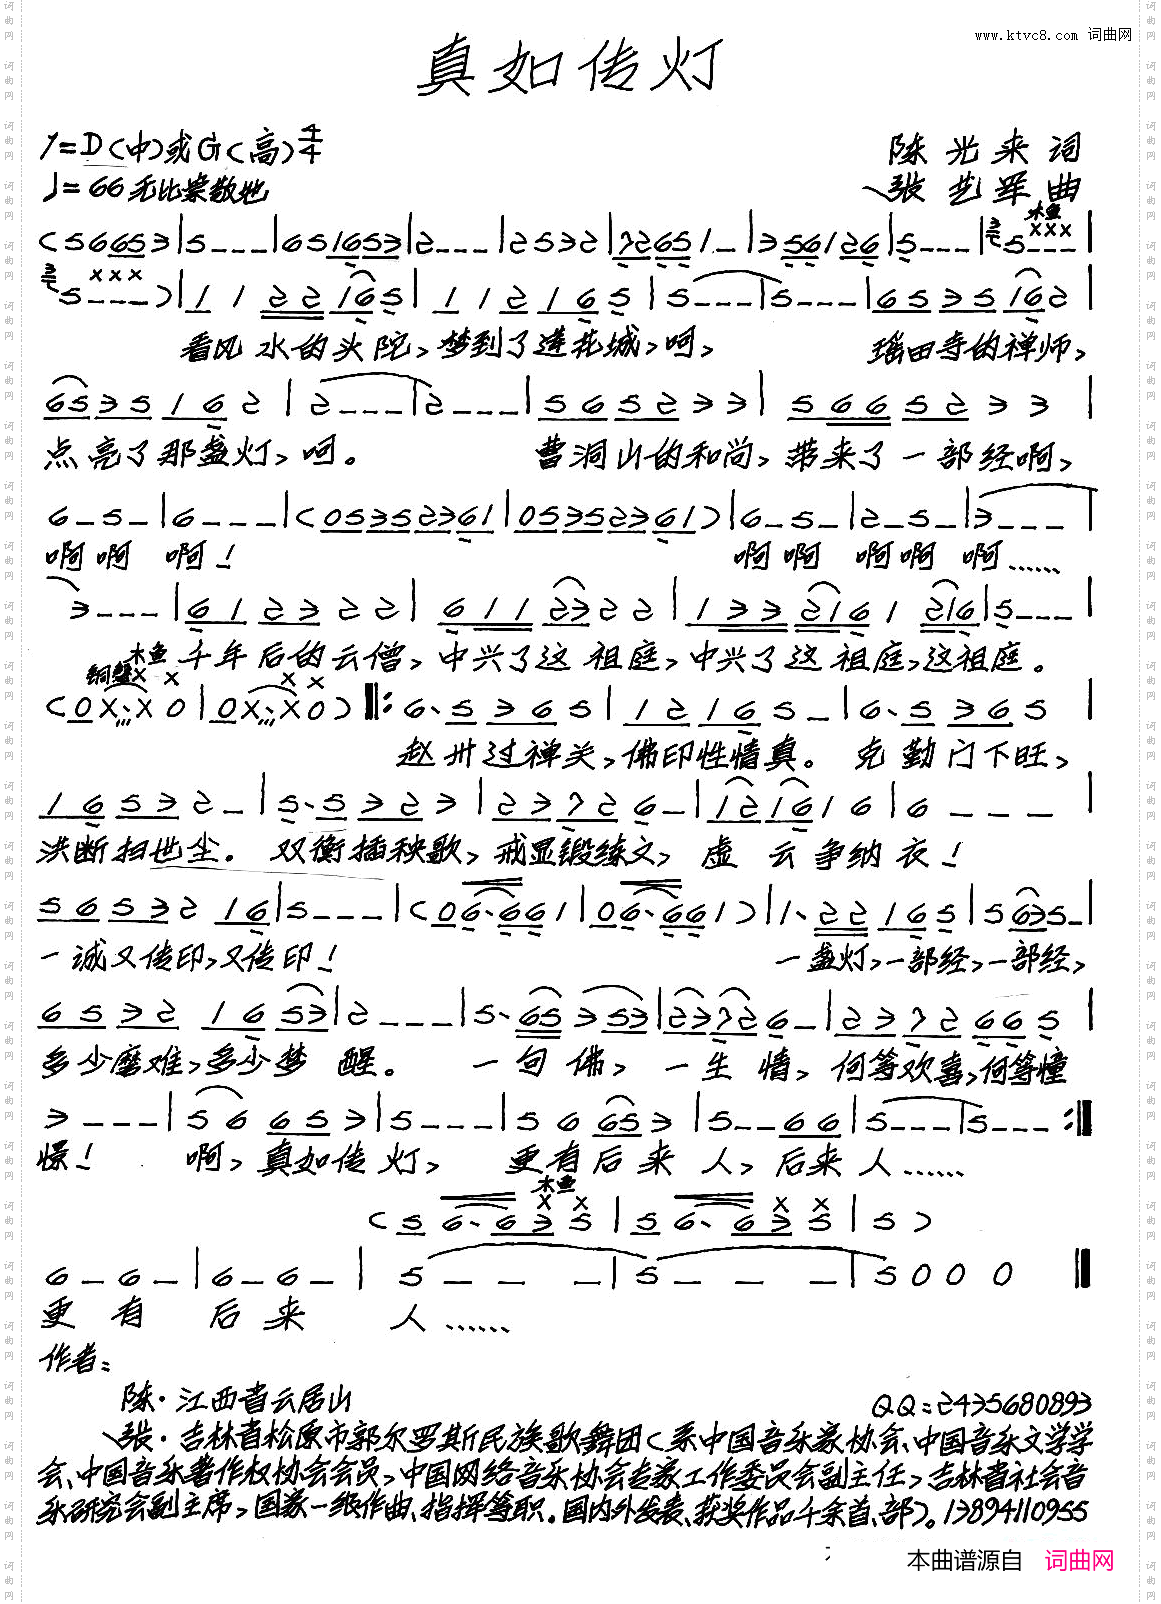 www.ktvc8.com 词曲网
真如传灯
1=D(中)或G(高)4/4
陈光来词
♩=66无比崇敬地
张艺军曲
木鱼
(56653|5---|651653|2---|2532|7265|1-|356126|5---|5---
×××
5---)|1 1 22165|112165|5---|5---|6535162|
看风水的头陀,梦到了莲花城,呵,瑶田寺的禅师,
6535162|2---|2---|565233|5665233|
点亮了那盏灯,呵。曹洞山的和尚,带来了一部经啊,
6-5-|6---|(05352361|05352361)|6-5-|2-5-|3---|
啊啊 啊!啊啊 啊啊 啊……
3---|612322|6112322|1332161216|5---|
铜磬 木鱼 千年后的云僧,中兴了这祖庭,中兴了这祖庭,这祖庭。
(0X·X0|0X·X0)‖:6·5365|12165-|6·5365|
赵州过禅关,佛印性情真。克勤门下旺,
16532-|5·5323|23726-|121616|6---|
洪断扫世尘。双衡插秧歌,戒显锻练文,虚云争纳衣!
5653216|5---|(06·661|06·661)|1·22165|5635-|
一诚又传印,又传印!一盏灯,一部经,一部经,
65321653|2---|5·65353|23726-|2372665|
多少磨难,多少梦醒。一句佛,一生情,何等欢喜,何等憧
3---|56653|5---|56653|5--66|5---|5---:‖
憬!啊,真如传灯,更有后来人,后来人……
木鱼
(56·635|56·635|5)
6-6-|6-6-|5---|5---|5000‖
更有后来人……
作者:
陈·江西省云居山
QQ:2435680893
张·吉林省松原市郭尔罗斯民族歌舞团(系中国音乐家协会、中国音乐文学学
会、中国音乐著作权协会会员,中国网络音乐协会专家工作委员会副主任,吉林省社会音
乐研究会副主席,国家一级作曲、指挥等职。国内外发表、获奖作品千余首、部)。13894110955
本曲谱源自 词曲网